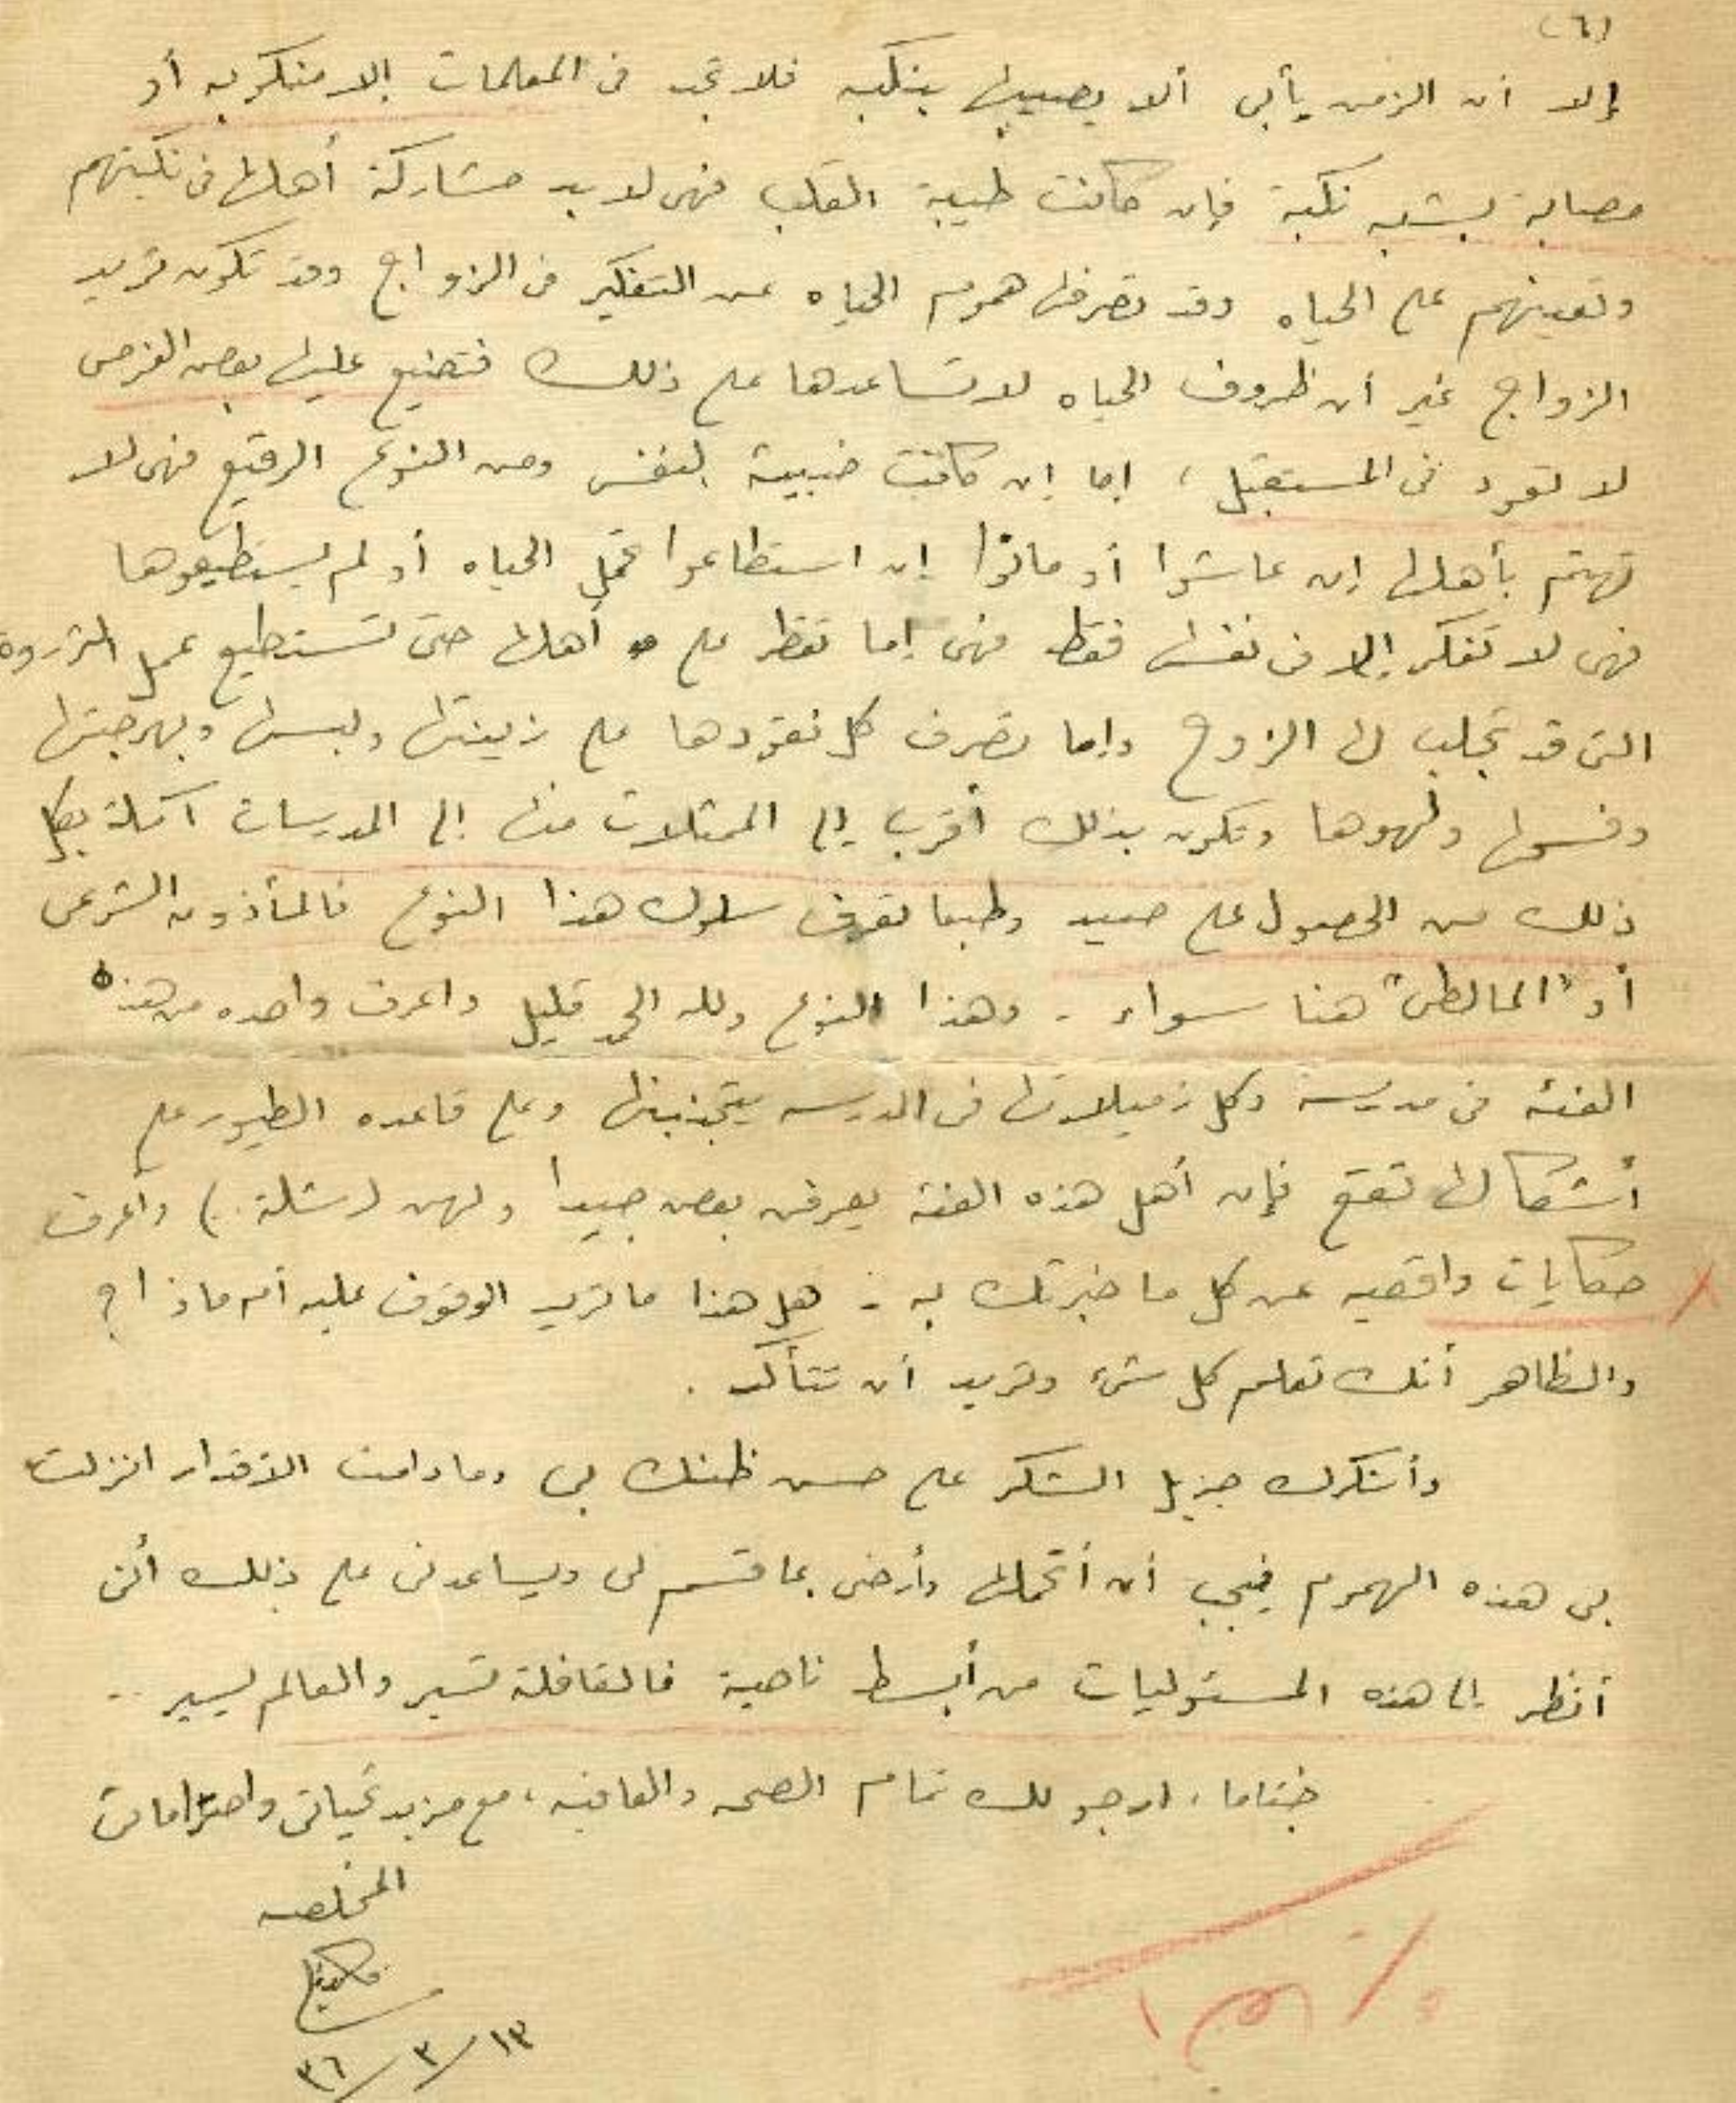 (٦)
إلا أن الزمن يأبى ألا يصيبها بنكبه فلا تجد فى المعلمات إلا منكوبه أو
مصابة بشبه نكبة فإن كانت طيبة القلب فهى لابد مشاركة أهلها فى نكبتهم
وتعينهم على الحياه وقد تصرفها هموم الحياه عن التفكير فى الزواج وقد تكون تريد
الزواج غير أن ظروف الحياه لا تساعدها على ذلك فتضيع عليها بعض الفرص
لا تعود فى المستقبل، إما إن كانت خبيثة النفس ومن النوع الرقيع فهى لا
تهتم بأهلها إن عاشوا أو ماتوا إن استطاعوا تحمل الحياه أو لم يستطيعوها
فهى لا تفكر إلا فى نفسها فقط فهى إما تقطر على أهلها حتى تستطيع عمل الثروة
التى قد تجلب لها الزوج وإما تصرف كل نقودها على زينتها ولبسها وبهرجتها
وفسحها ولهوها وتكون بذلك أقرب إلى الممثلات منها إلى المدرسات آملة بكل
ذلك من الحصول على صيد وطبعا تعرف سلوك هذا النوع فالمأذون الشرعى
أو "المالطى" هنا سواء. وهذا النوع ولله الحمد قليل واعرف واحده من هذه
الفئه فى مدرسة وكل زميلاتها فى المدرسه يتجنبنها وعلى قاعده الطيور على
أشكالها تقع فإن أهل هذه الفئة يعرفن بعض جيدا ولهن (شلة..) وأعرف
حكايات واقعيه عن كل ما خبرتك به - هل هذا ما تريد الوقوف عليه أم ماذا؟
والظاهر أنك تعلم كل شئ وتريد أن تتأكد.
وأشكرك جزيل الشكر على حسن ظنك بى وما دامت الأقدار انزلت
بى هذه الهموم فيجب أن أتحملها وأرضى بما قسم لى ويساعدنى على ذلك أنى
أنظر إلى هذه المسئوليات من أبسط ناحية فالقافلة تسير والعالم يسير ..
ختاما، ارجو لك تمام الصحه والعافيه، مع مزيد تحياتى واحتراماتى
المخلصه
١٣/٣/٣٦